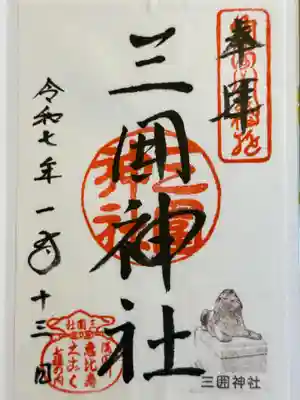 奉拝
三囲神社
令和七年一月十三日
三囲神社
三囲神社